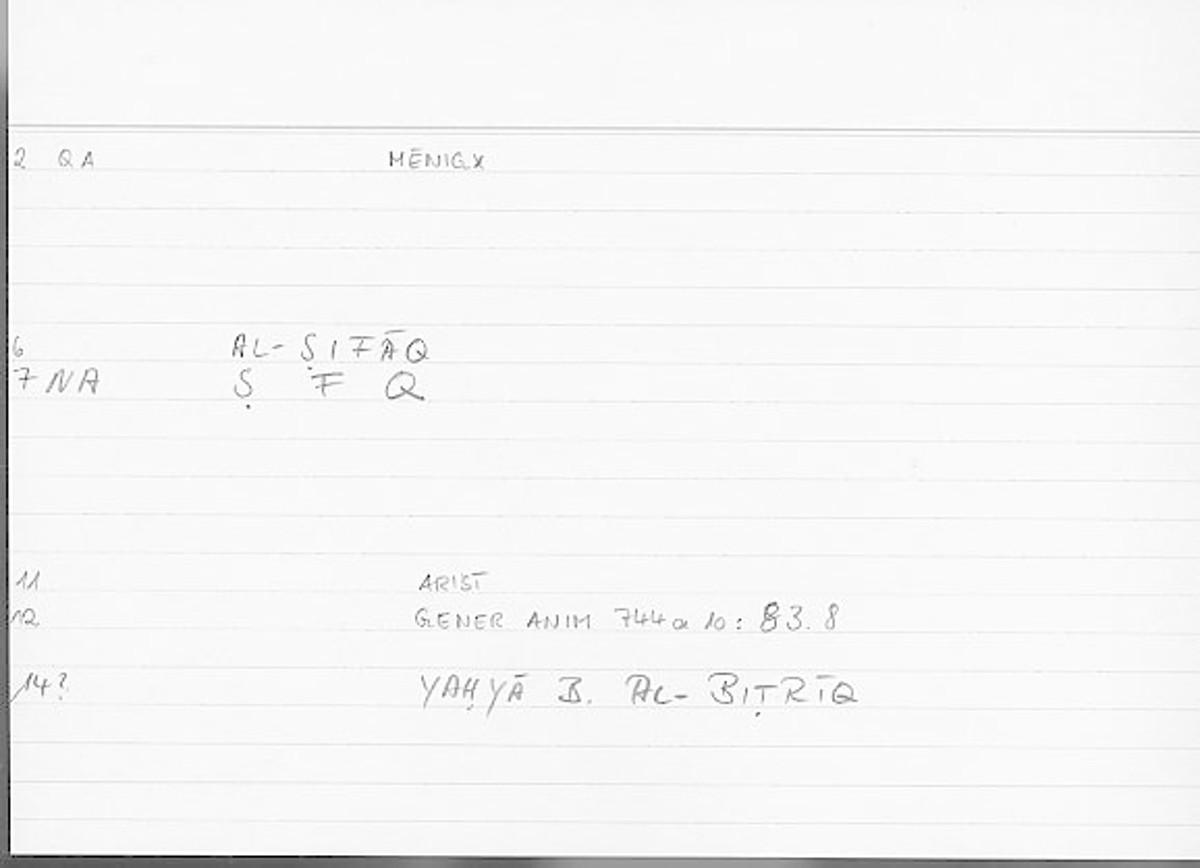 2 QA MĒNIGX
6 AL-ṢIFĀQ
7 NA Ṣ F Q
11 ARIST
12 GENER ANIM 744a 10: 83.8
14? YAḤYĀ B. AL-BIṬRĪQ